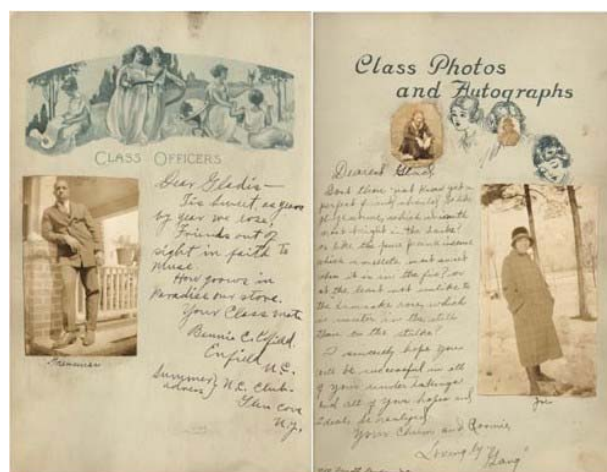 CLASS OFFICERS
Dear Gladis—
'Tis sweet as year
by year we lose,
Friends out of
sight in faith to
muse
How grows in
Paradise our store.
Your Class mate
Bennie C.
Enfield
N.C.
Summer } N.C. Club-
adress } Glen Cove
N.Y.
Class Photos
and Autographs
Dearest
Dost thou not know yet a
perfect friend should be like
which
bright in the
or like the
which is most sweet
when it is in the fire? or
at the least not unlike to
the damaske rose, which
is sweeter in the still
than on the
I sincerely hope you
will be successful in all
of your undertakings
and all of your hopes and
ideals be realized.
Your Chum and Roomie
Lovingly
"